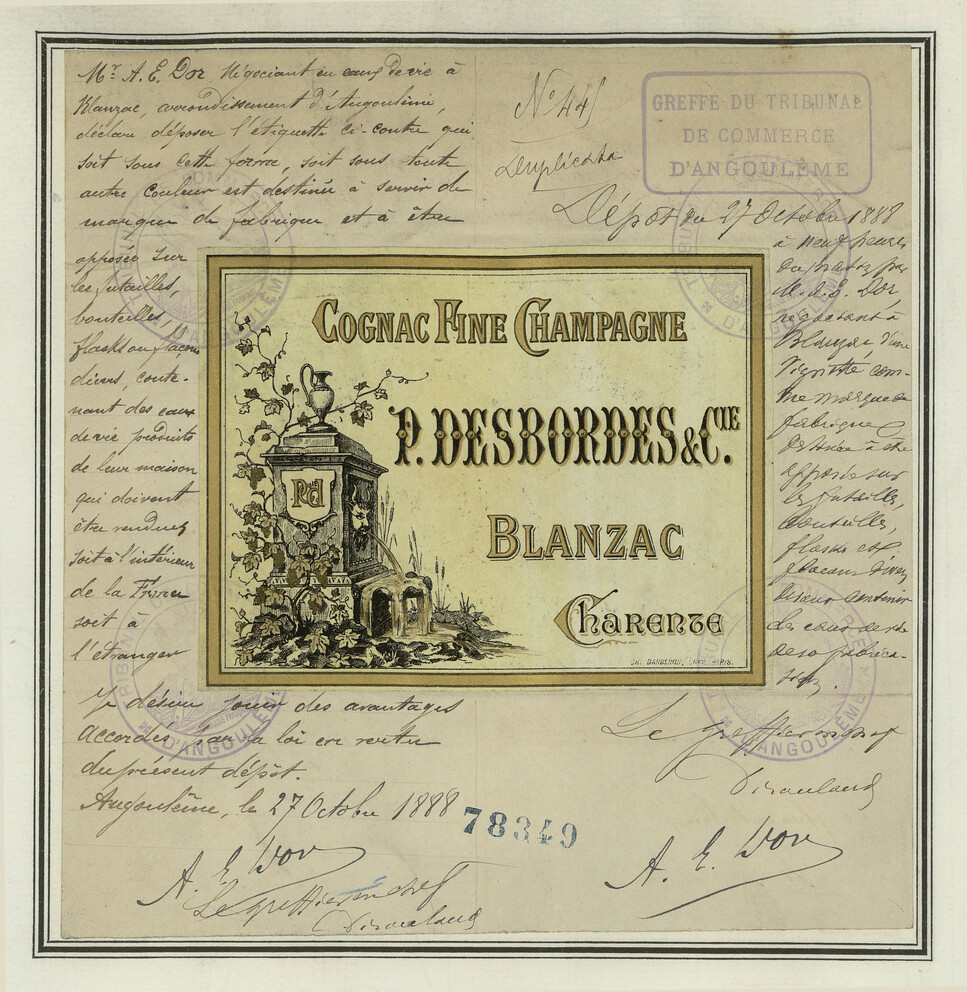 Mr. A. E. Dor Négociant en eaux de vie à
Blanzac, arrondissement d'Angoulême,
déclare déposer l'étiquette ci-contre qui
soit sous cette forme, soit sous toute
autre couleur est destinée à servir de
marque de fabrique et à être
apposée sur
les futailles,
bouteilles,
flasks ou flacons
divers, conte-
nant des eaux
de vie produits
de leur maison
qui doivent
être vendues
soit à l'intérieur
de la France
soit à
l'étranger
Je désire jouir des avantages
accordés par la loi en vertu
du présent dépôt.
Angoulême, le 27 Octobre 1888
A. E. Dor
Le greffier en chef
N° 445
Duplicata
GREFFE DU TRIBUNAL
DE COMMERCE
D'ANGOULÊME
Dépôt du 27 Octobre 1888
à neuf heures
du matin, par
M. A. E. Dor,
négociant à
Blanzac, d'une
vignette com-
me marque de
fabrique
destinée à être
apposée sur
les futailles,
bouteilles,
flasks et
flacons divers
devant contenir
des eaux de vie
de sa fabrica-
tion.
Le greffier en chef
A. E. Dor
COGNAC FINE CHAMPAGNE
P. DESBORDES & CIE.
BLANZAC
CHARENTE
PD
78349
TRIBUNAL
D'ANGOULÊME
D'ANGOULÊME